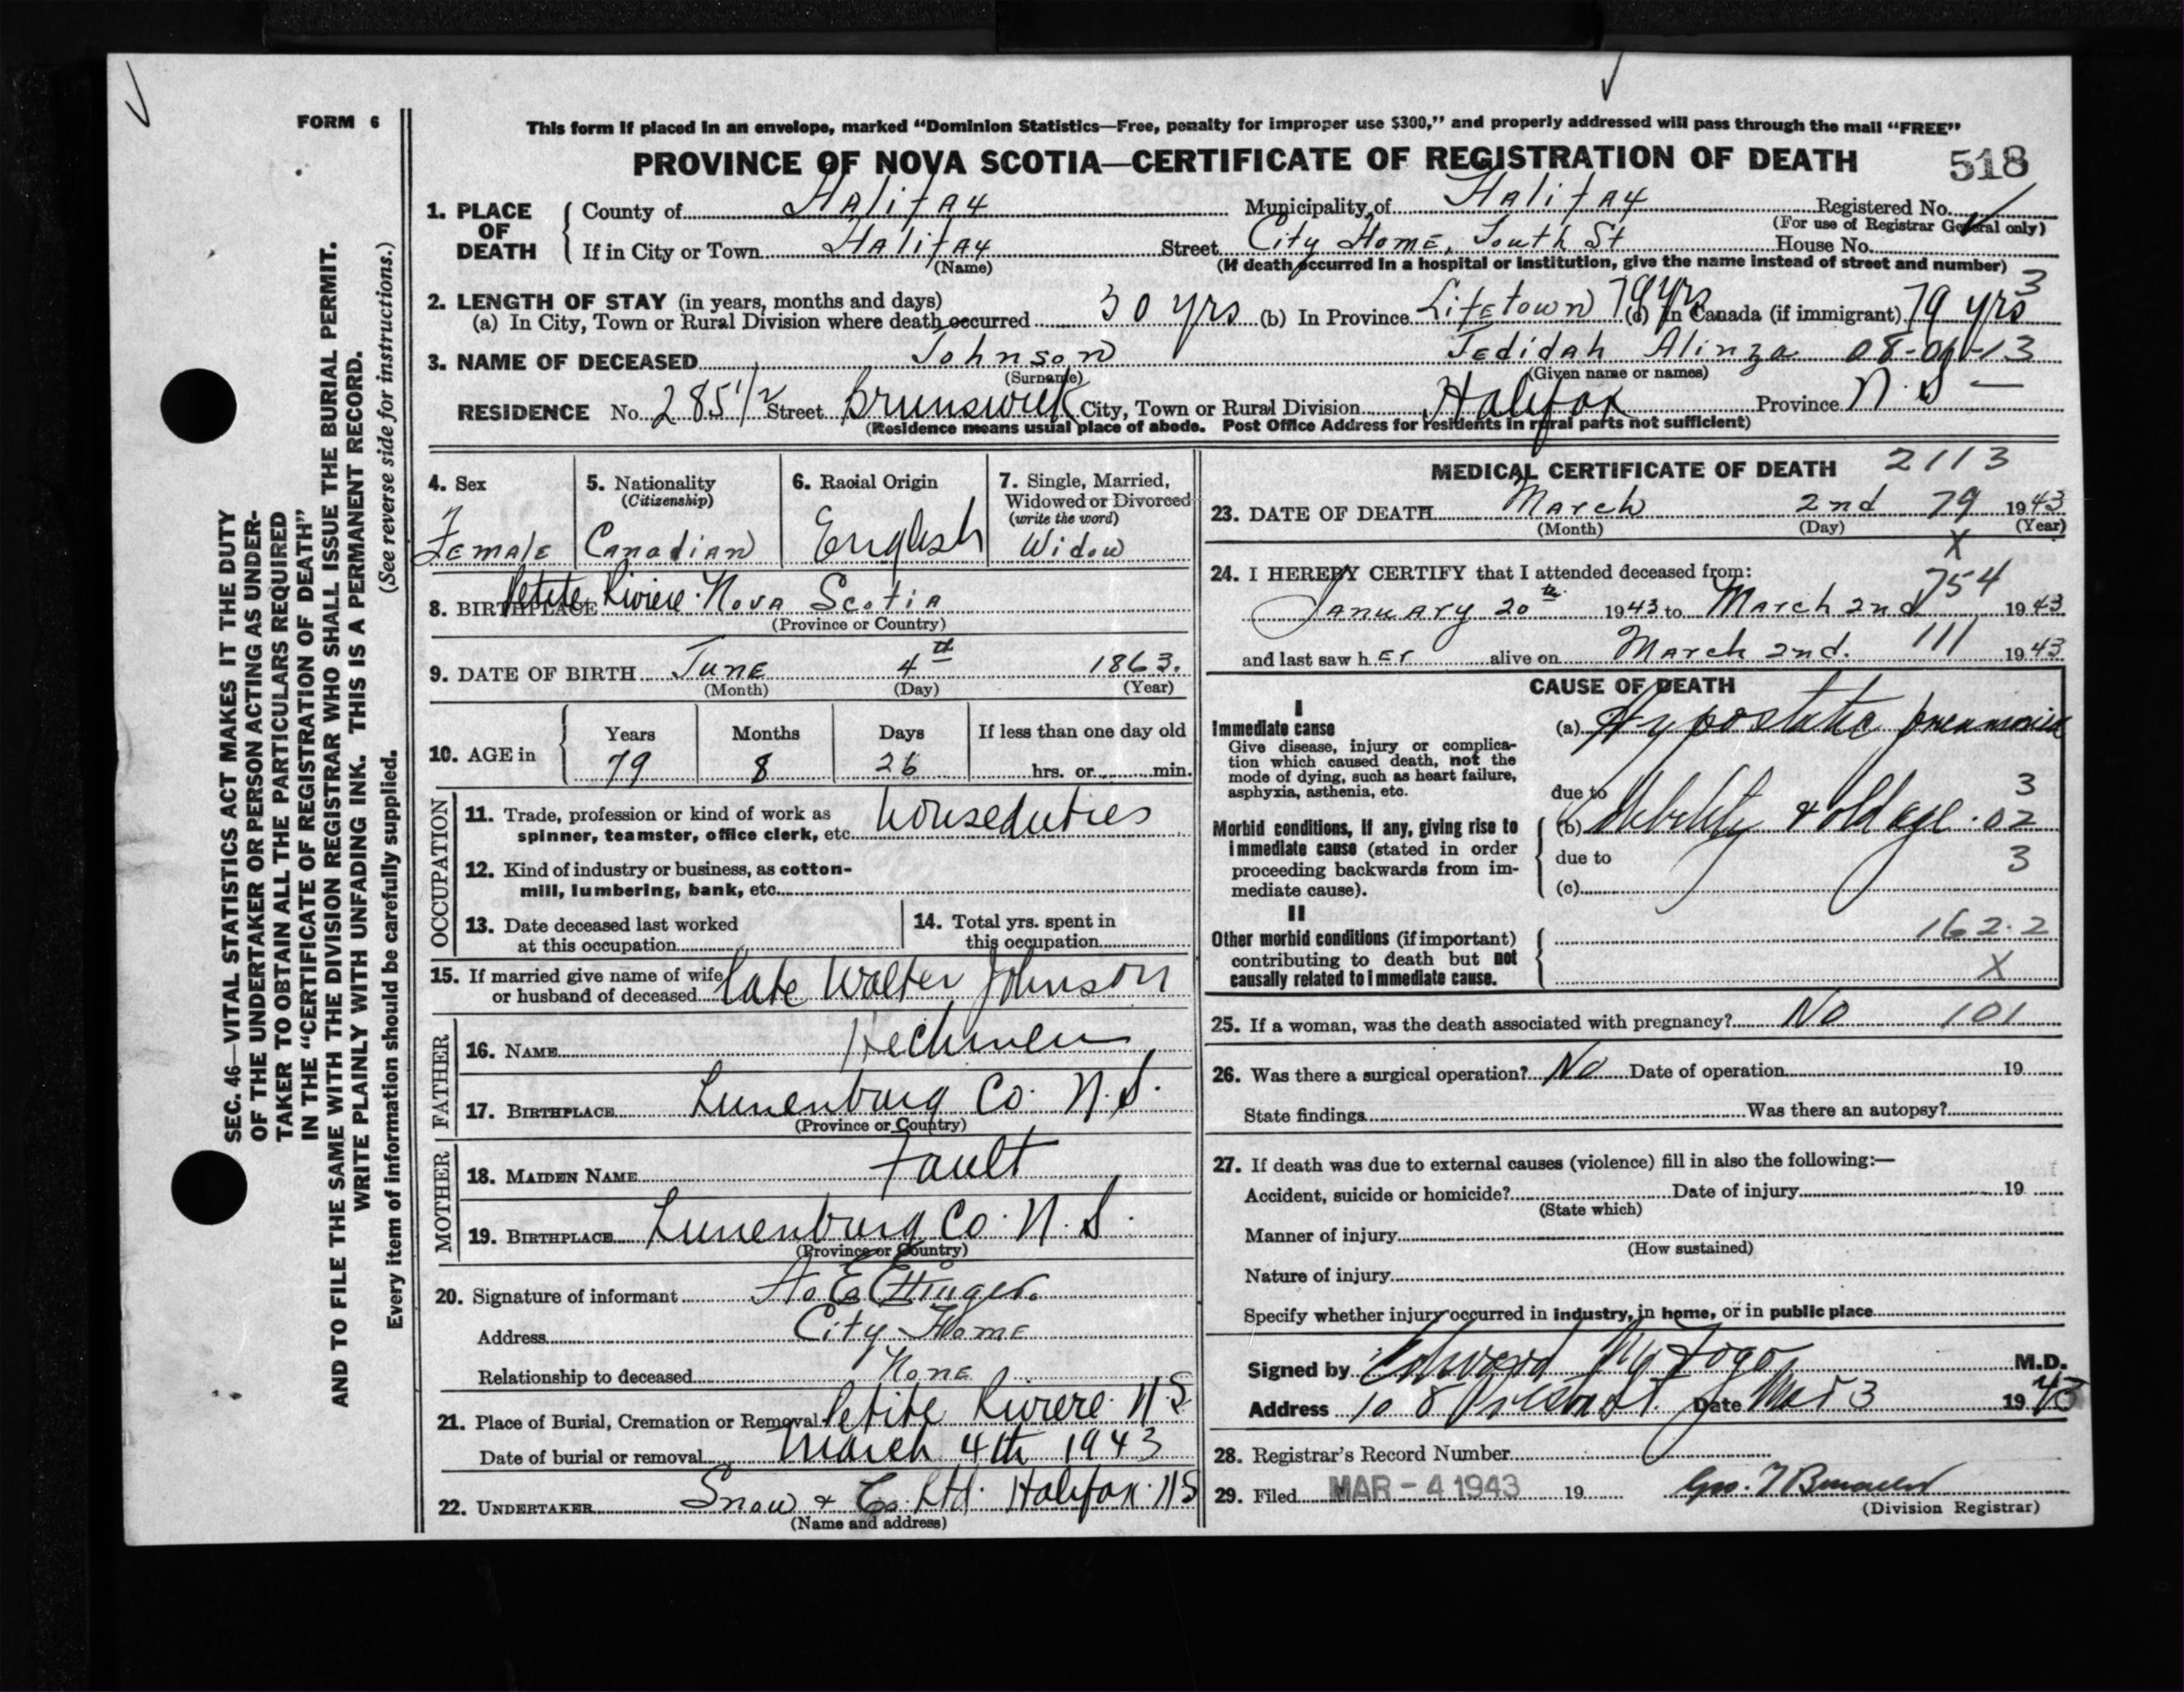 FORM 6
This form if placed in an envelope, marked “Dominion Statistics—Free, penalty for improper use $300,” and properly addressed will pass through the mail “FREE”
PROVINCE OF NOVA SCOTIA—CERTIFICATE OF REGISTRATION OF DEATH 518
1. PLACE OF DEATH County of Halifax Municipality of Halifax Registered No.
(For use of Registrar General only)
If in City or Town Halifax Street City Home, South St House No.
(Name) (If death occurred in a hospital or institution, give the name instead of street and number)
2. LENGTH OF STAY (in years, months and days) 3
(a) In City, Town or Rural Division where death occurred 30 yrs (b) In Province 79 yrs (c) In Canada (if immigrant) 79 yrs
3. NAME OF DECEASED Johnson Jedidah Alinza 08-06-13
(Surname) (Given name or names)
RESIDENCE No. 285 1/2 Street Brunswick City, Town or Rural Division Halifax Province N.S —
(Residence means usual place of abode. Post Office Address for residents in rural parts not sufficient)
4. Sex Female
5. Nationality (Citizenship) Canadian
6. Racial Origin English
7. Single, Married, Widowed or Divorced (write the word) Widow
8. BIRTHPLACE Petite Riviere. Nova Scotia
(Province or Country)
9. DATE OF BIRTH June 4th 1863.
(Month) (Day) (Year)
10. AGE in Years 79 Months 8 Days 26 If less than one day old
hrs. or min.
OCCUPATION
11. Trade, profession or kind of work as
spinner, teamster, office clerk, etc. houseduties
12. Kind of industry or business, as cotton-
mill, lumbering, bank, etc.
13. Date deceased last worked
at this occupation
14. Total yrs. spent in
this occupation
15. If married give name of wife
or husband of deceased late Walter Johnson
FATHER
16. NAME
17. BIRTHPLACE Lunenburg Co. N.S.
(Province or Country)
MOTHER
18. MAIDEN NAME Fault
19. BIRTHPLACE Lunenburg Co. N.S.
(Province or Country)
20. Signature of informant Ettinger
Address City Home
Relationship to deceased None
21. Place of Burial, Cremation or Removal Petite Riviere. N S.
Date of burial or removal March 4th 1943
22. UNDERTAKER Snow & Co. Ltd. Halifax. N S
(Name and address)
MEDICAL CERTIFICATE OF DEATH 2113
23. DATE OF DEATH March 2nd 79 1943
(Month) (Day) (Year)
X
24. I HEREBY CERTIFY that I attended deceased from: 754
January 20th 1943 to March 2nd 1943
and last saw her alive on March 2nd. 111 1943
CAUSE OF DEATH
I
Immediate cause
Give disease, injury or complica-
tion which caused death, not the
mode of dying, such as heart failure,
asphyxia, asthenia, etc.
(a) Hypostatic pneumonia
due to 3
Morbid conditions, if any, giving rise to
immediate cause (stated in order
proceeding backwards from im-
mediate cause).
(b) debility & old age. 02
due to 3
(c)
II
Other morbid conditions (if important)
contributing to death but not
causally related to immediate cause.
162.2
X
25. If a woman, was the death associated with pregnancy? No 101
26. Was there a surgical operation? No Date of operation 19
State findings Was there an autopsy?
27. If death was due to external causes (violence) fill in also the following:—
Accident, suicide or homicide? Date of injury 19
(State which)
Manner of injury
(How sustained)
Nature of injury
Specify whether injury occurred in industry, in home, or in public place
Signed by Edward M.D.
Address 108 Date Mar 3 1943
28. Registrar's Record Number
29. Filed MAR - 4 1943 19 Geo.
(Division Registrar)
SEC. 46—VITAL STATISTICS ACT MAKES IT THE DUTY
OF THE UNDERTAKER OR PERSON ACTING AS UNDER-
TAKER TO OBTAIN ALL THE PARTICULARS REQUIRED
IN THE “CERTIFICATE OF REGISTRATION OF DEATH”
AND TO FILE THE SAME WITH THE DIVISION REGISTRAR WHO SHALL ISSUE THE BURIAL PERMIT.
WRITE PLAINLY WITH UNFADING INK. THIS IS A PERMANENT RECORD.
(See reverse side for instructions.)
Every item of information should be carefully supplied.